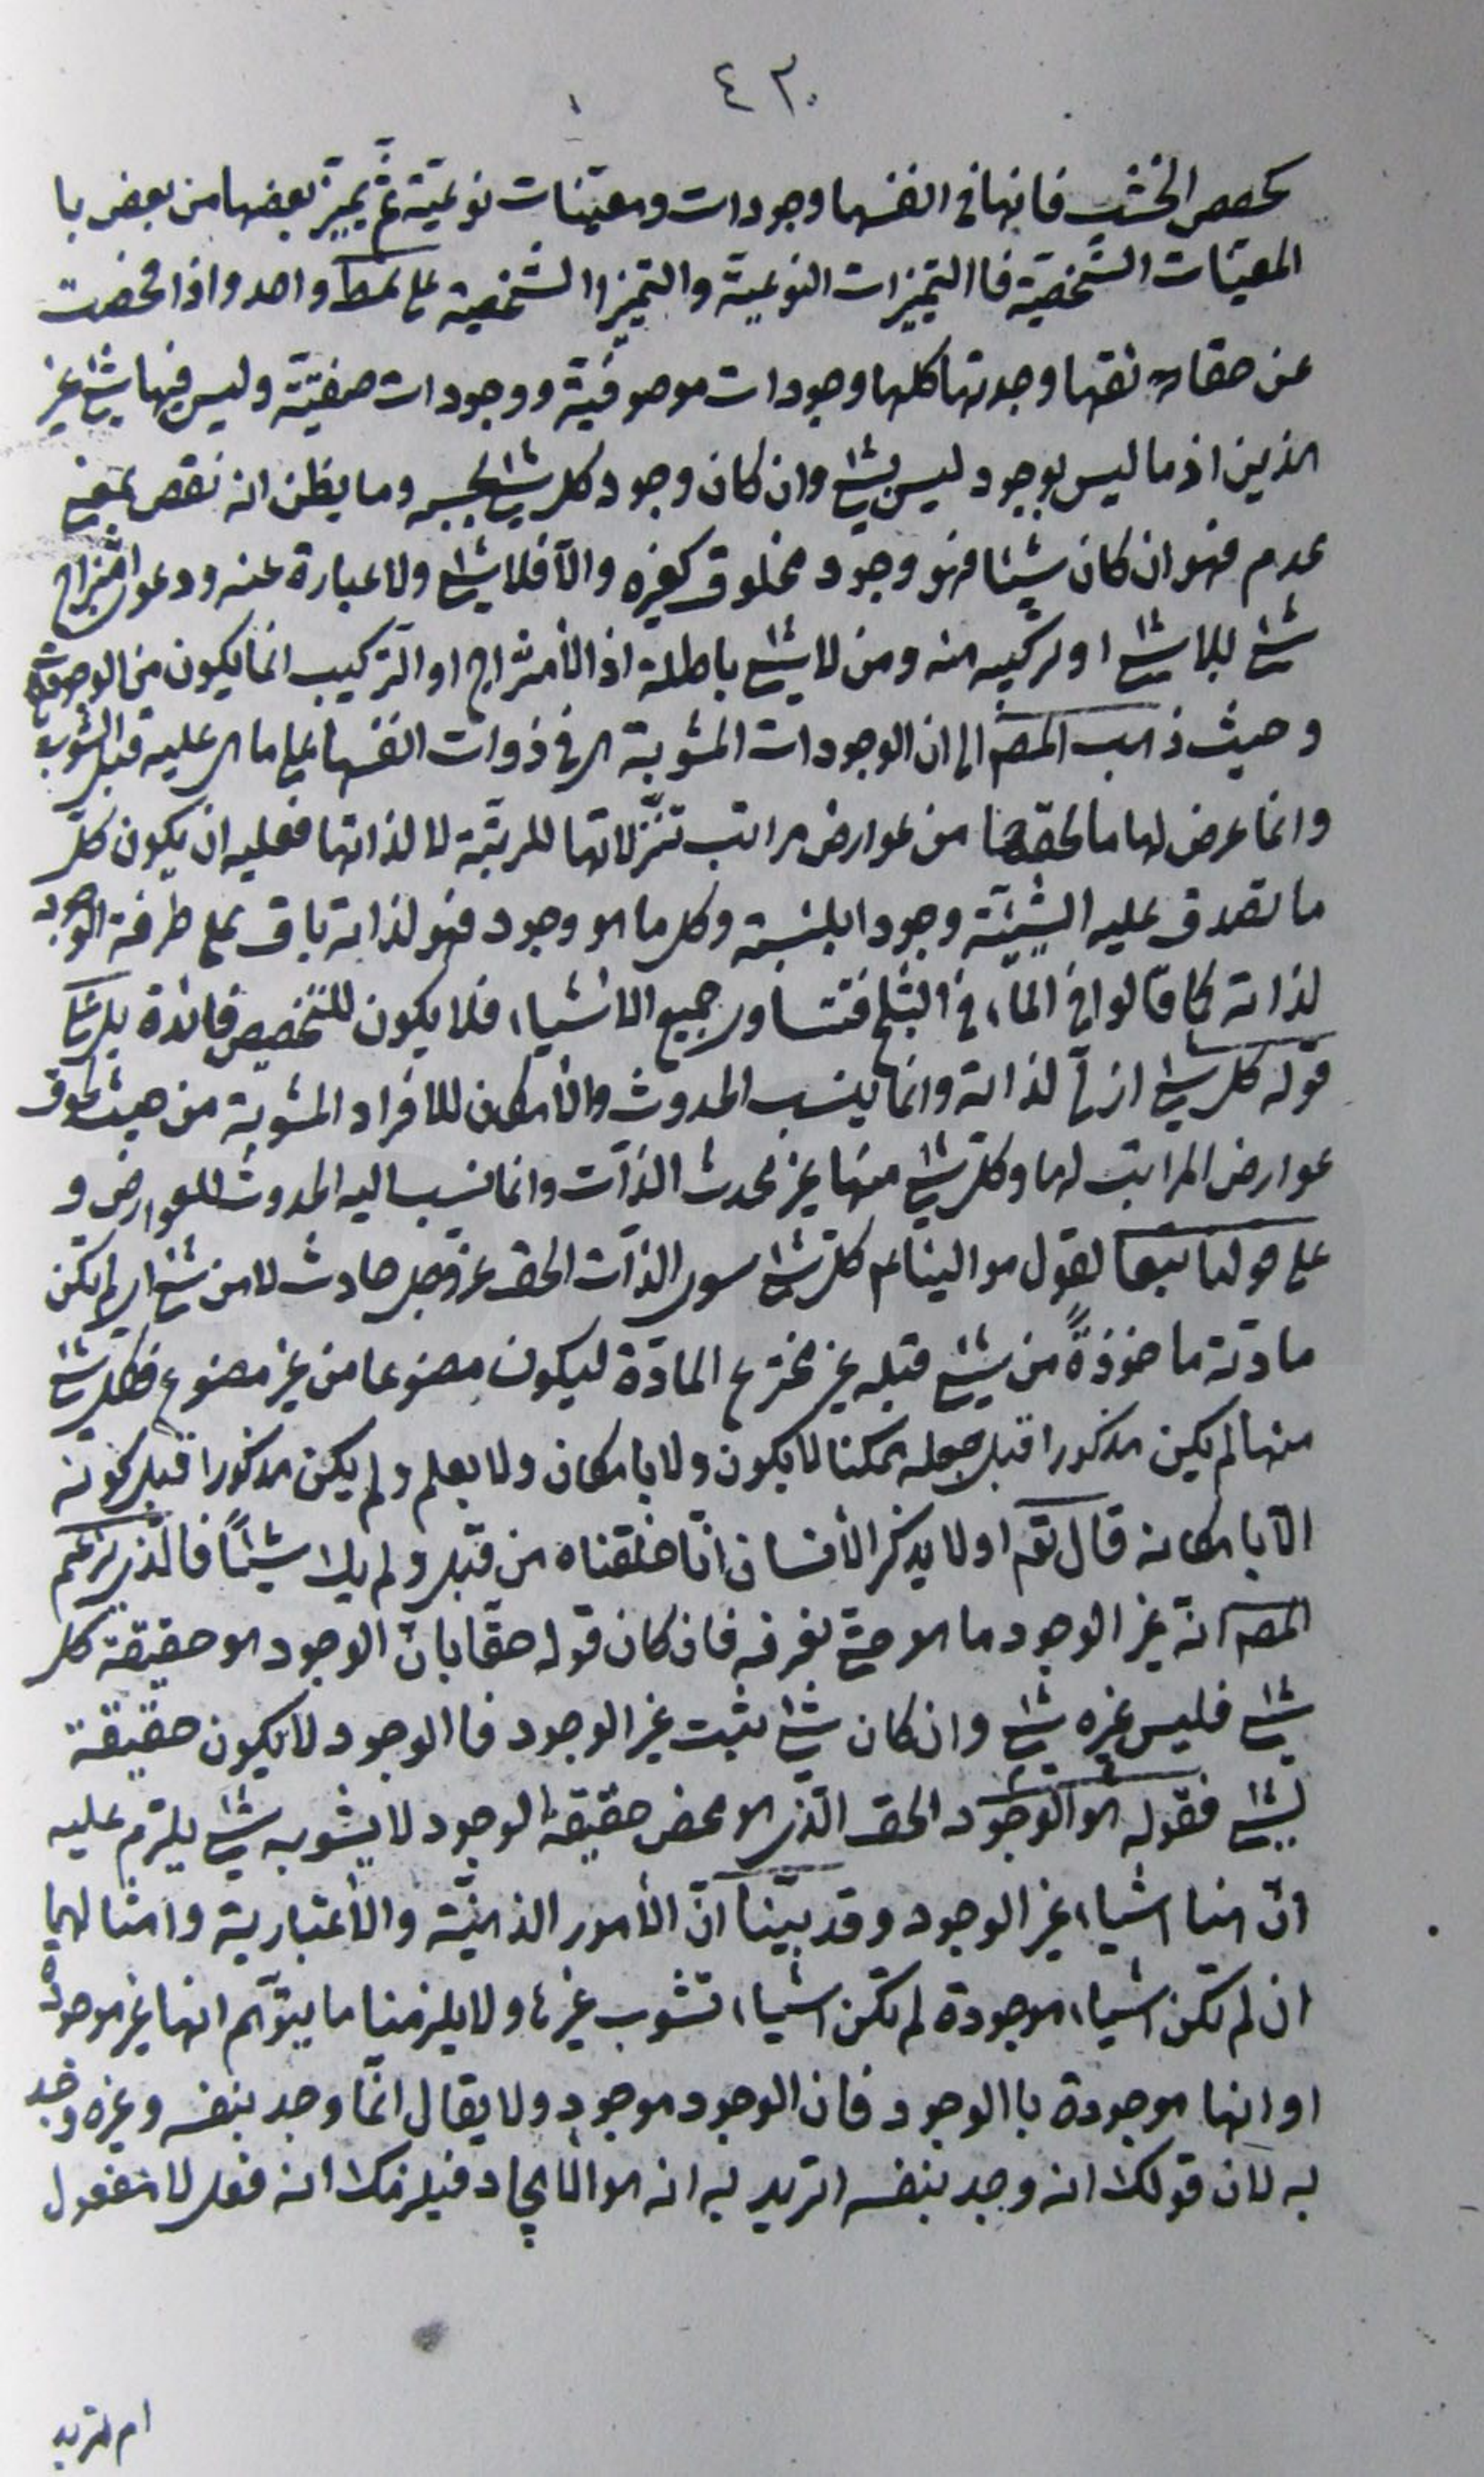 ٤٣
كحصص الخشب فانها فى انفسها وجودات ومعيّنات نوعيّة ثمّ يميّز بعضها من بعض با
المعيّنات الشّخصيّة فاالتميّزات النوعيّة والتميّزا الشّخصية على نمط واحد واذا محضت
عن حقايق نفسها وجدتها كلها وجودات موصوفيّة ووجودات صفتيّة وليس فيها شئ غير
الذين اذ ما ليس بوجود ليس بشئ وان كان وجود كل شئ بحسبه وما يظن انه نقص بمعنى
عدم فهو ان كان شيئا فهو وجود مخلوق كغيره والّا فلا شئ ولا عبارة عنه ودعوى امتزاج
شئ بلا شئ او تركيبه منه ومن لا شئ باطلة اذ الأمتزاج او التركيب انما يكون من الوجوديّات
وحيث ذهب المصم الى ان الوجودات المشوبة هى فى ذوات انفسها على ما هى عليه قبل الشوب
وانما عرض لها ما لحقها من عوارض مراتب تنزّلاتها المرتبة لا لذاتها فعليه ان يكون كلّ
ما تصدق عليه الشيئيّة وجودا بلنسبة وكل ما هو وجود فهو لذاته باق على صرافة الوجود
لذاته كما قالوا فى الماء فى الثلج فتتساوى جميع الاشياء فلا يكون للتخصيص فائدة بل
قوله كل شئ ازلىّ لذاته وانما ينسب الحدوث والأمكان للافراد المشوبة من حيث لحوق
عوارض المراتب لها وكلّ شئ منها غير محدث الذّات وانما نسب اليه الحدوث للعوارض و
على قولنا تبعا لقول موالينا عم كلّ شئ سوى الذّات الحق عزوجل حادث لا من شئ اى لم يكن
مادّته ماخوذةً من شئ قبله غير مخترع المادّة ليكون مصنوعا من غير مصنوع فكل شئ
منها لم يكن مذكورا قبل جعله ممكنا لا بكون ولا بامكان ولا بعلم ولم يكن مذكورا قبل كونه
الّا بامكانه قال تعه اولا يذكر الأنسان انّا خلقناه من قبل ولم يك شيئًا فالّذى يزعم
المصم انّه غير الوجود ما هو حتى نعرفه فان كان قوله حقّا بانّ الوجود هو حقيقة كل
شئ فليس غيره شئ وان كان شئ يثبت غير الوجود فا الوجود لا يكون حقيقة
لشئ فقوله هو الوجود الحق الّذى هو محض حقيقة الوجود لا يشوبه شئ يلزم عليه
انّ هنا اشياء غير الوجود وقد بيّنا انّ الأمور الذهنيّة والأعتبارية وامثالهما
ان لم تكن اشياء موجودة لم تكن اشياء تشوب غيرها ولا يلزمنا ما يتوهّم انها غير موجودة
او انها موجودة باالوجود فان الوجود موجود ولا يقال انمّا وجد بنفسه وغيره وجد
به لان قولك انه وجد بنفسه اتريد به انه هو الأيجاد فيلزمك انه فعل لا مفعول
ام تريد